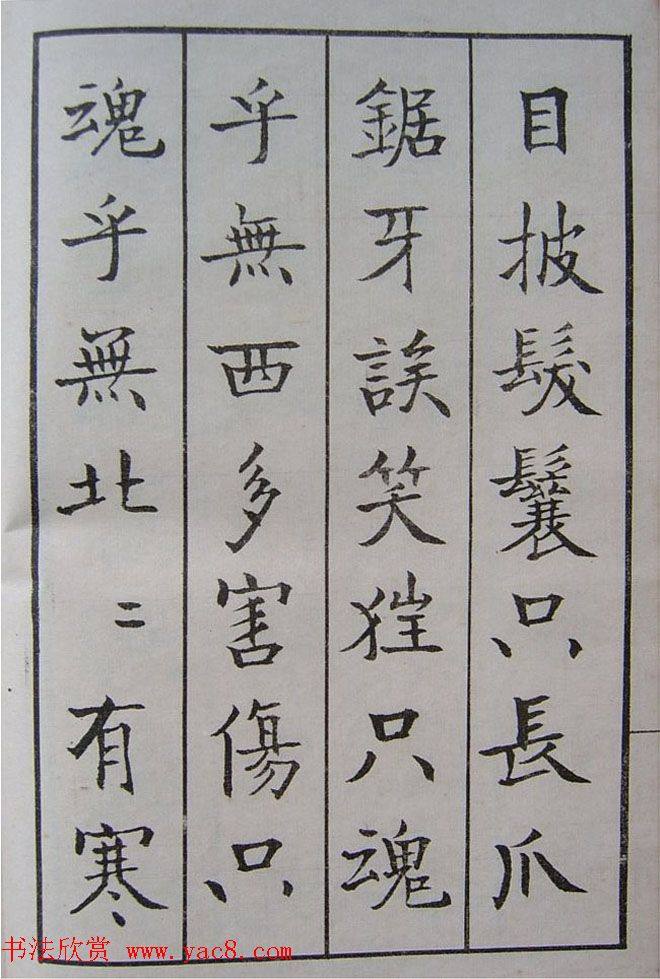 目披髮鬤只長爪
鋸牙誒笑狂只魂
乎無西多害傷只
魂乎無北二有寒
书法欣赏 www.yac8.com